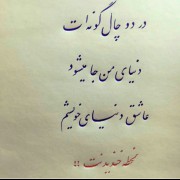 در دو چال گونه ات
دنیای من جا میشود
عاشق دنیای خویشم
لحظه خندیدنت ::